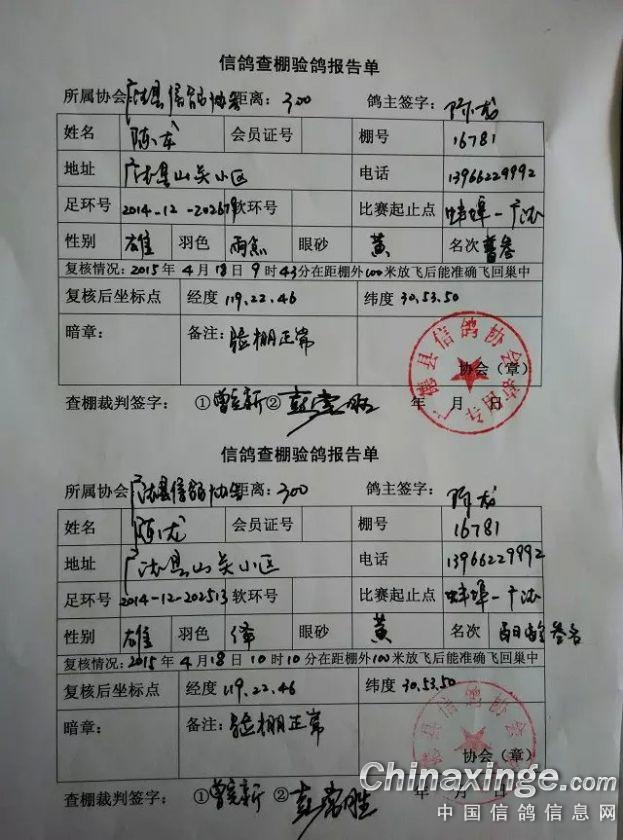 信鸽查棚验鸽报告单
所属协会 广德县信鸽协会 距离：300 鸽主签字：陈龙
姓名 陈龙 会员证号 棚号 16781
地址 广德县山关小区 电话 13966229992
足环号 2014-12-202679 软环号 比赛起止点 蚌埠—广德
性别 雄 羽色 雨点 眼砂 黄 名次
复核情况：2015年4月18日9时43分在距棚外100米放飞后能准确飞回巢中
复核后坐标点 经度 119.22.46 纬度 30.53.50
暗章： 备注：验棚正常 协会（章）
广德县信鸽协会
查棚裁判签字： ① ② 年 月 日
信鸽查棚验鸽报告单
所属协会 广德县信鸽协会 距离：300 鸽主签字：陈龙
姓名 陈龙 会员证号 棚号 16781
地址 广德县山关小区 电话 13966229992
足环号 2014-12-202513 软环号 比赛起止点 蚌埠—广德
性别 雄 羽色 绛 眼砂 黄 名次
复核情况：2015年4月18日10时10分在距棚外100米放飞后能准确飞回巢中
复核后坐标点 经度 119.22.46 纬度 30.53.50
暗章： 备注：验棚正常 协会（章）
广德县信鸽协会
查棚裁判签字： ① ② 年 月 日
Chinaxinge.com
中国信鸽信息网